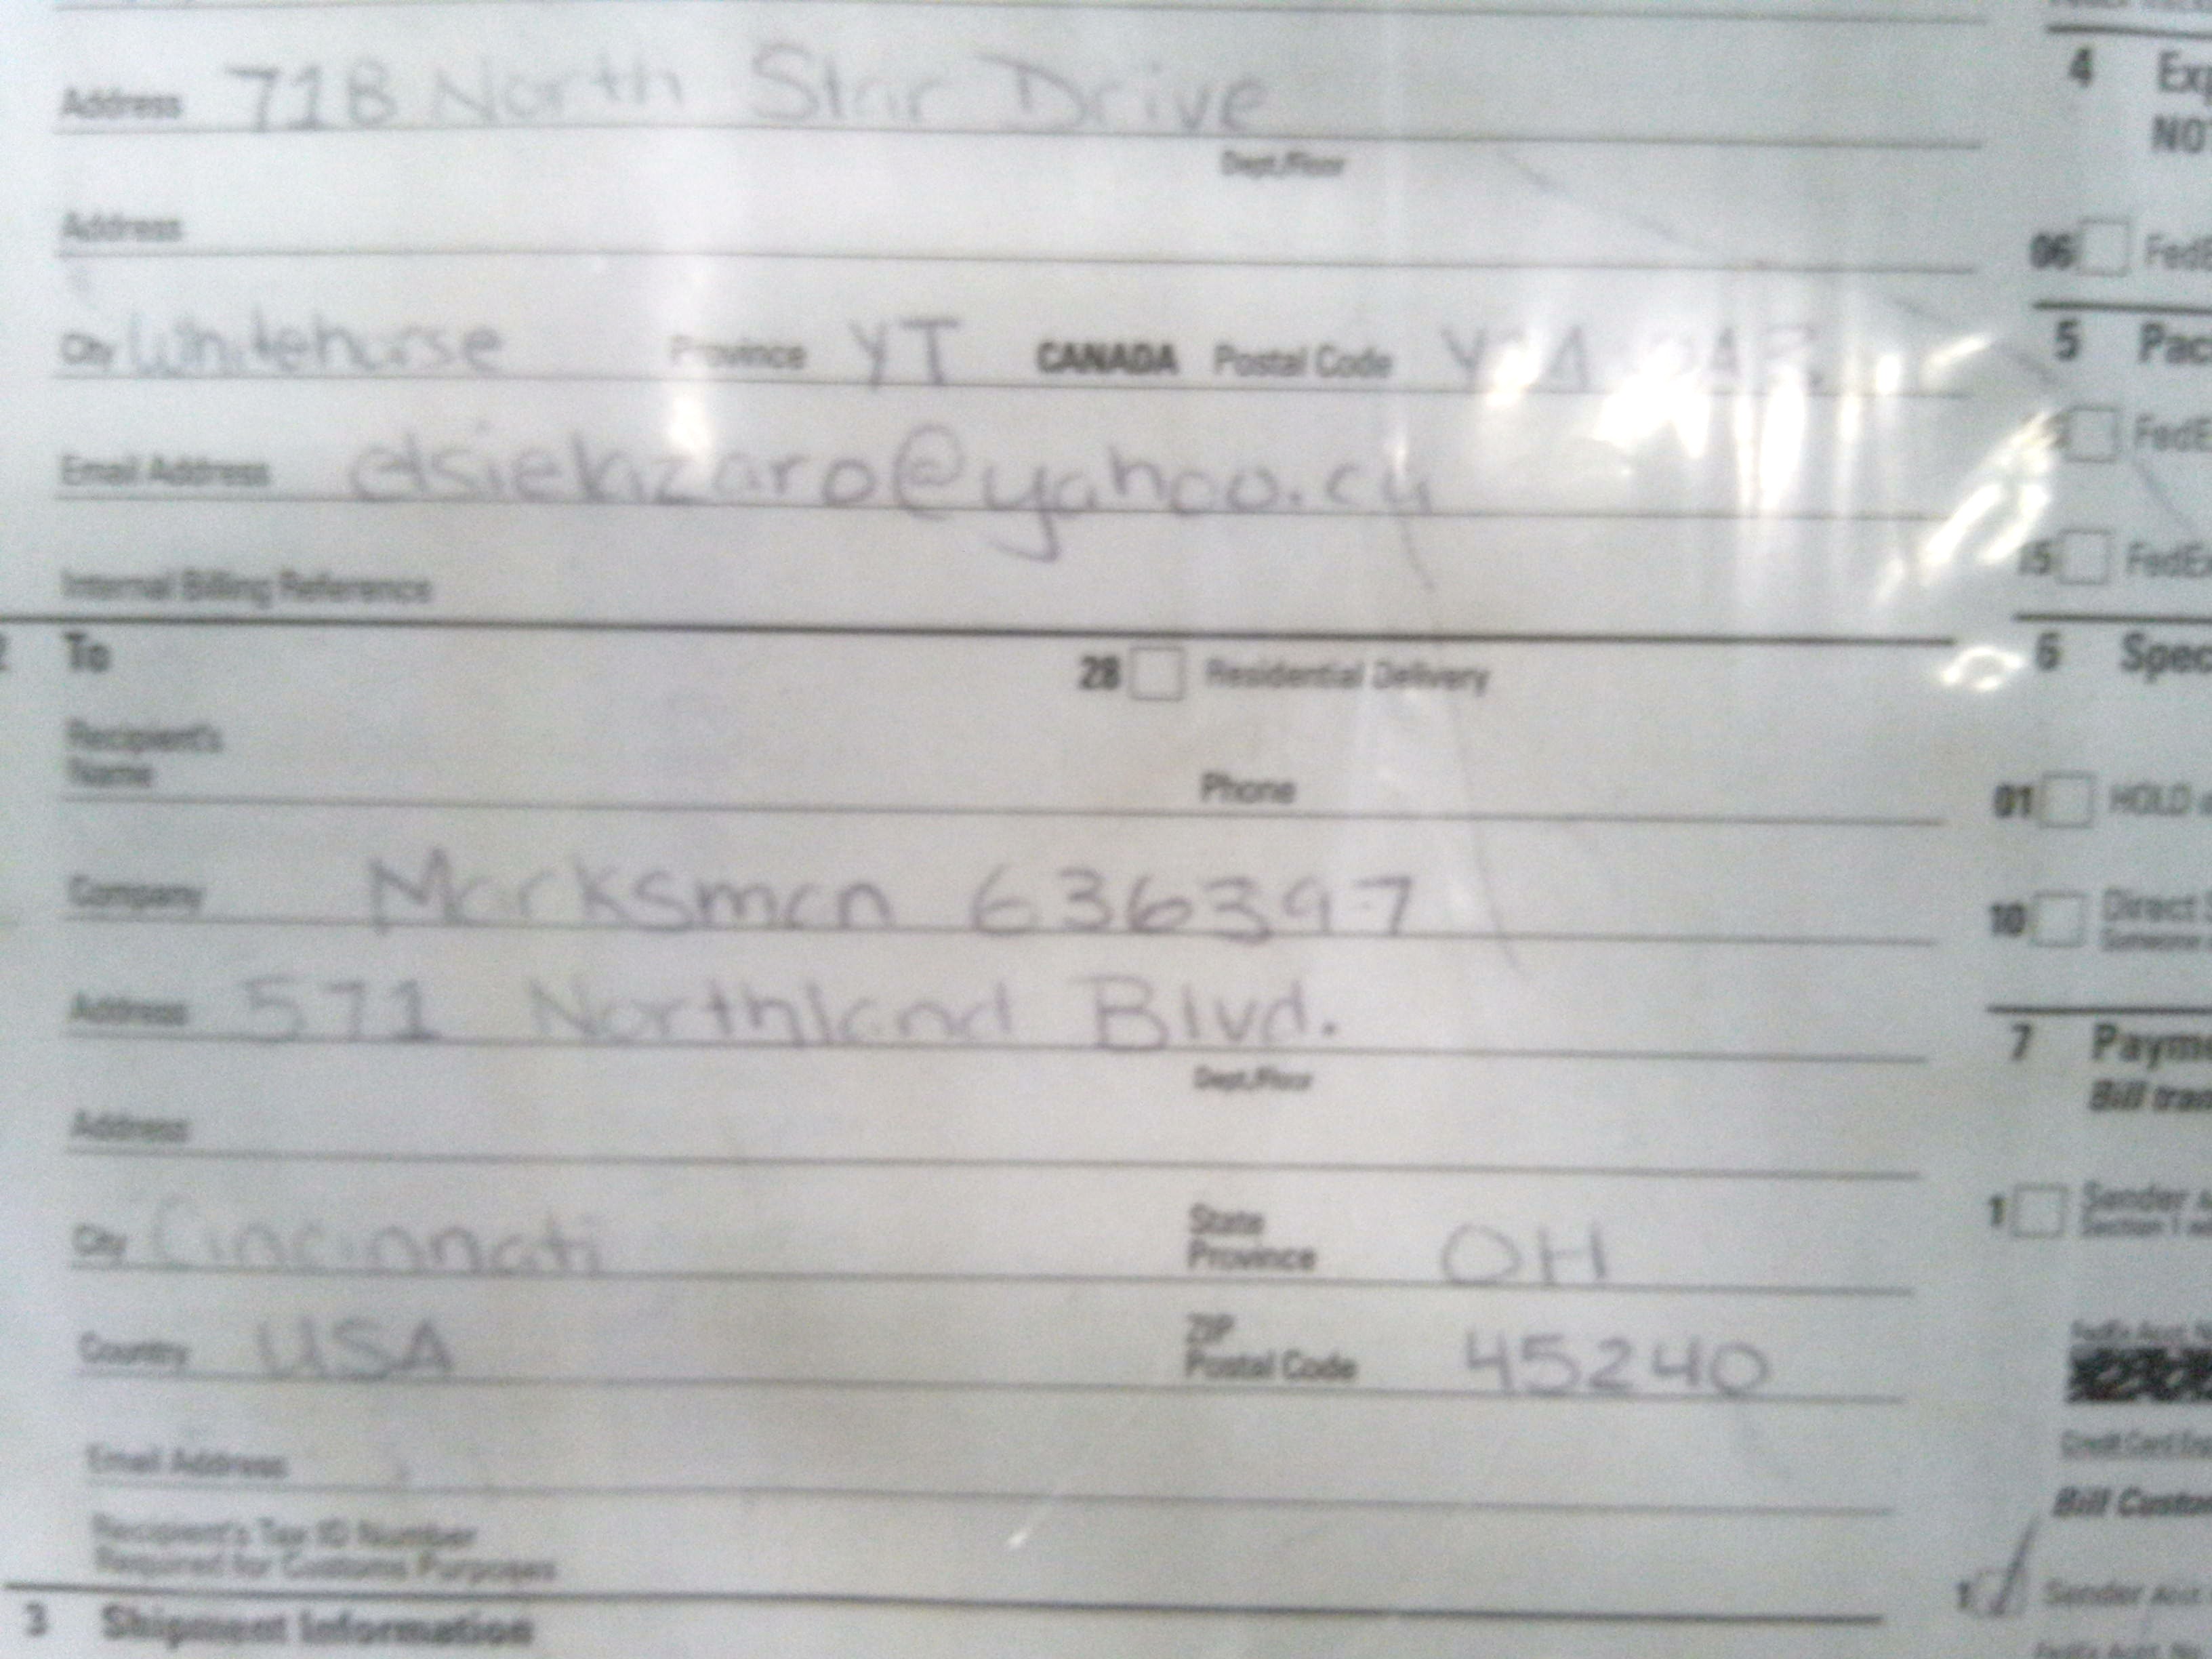 Address 71B North Star Drive
Dept./Floor
Address
City Whitehorse Province YT CANADA Postal Code
Email Address elsielazaro@yahoo.cy
Internal Billing Reference
2 To 28 Residential Delivery
Recipient's
Name Phone
Company Marksman 636397
Address 571 Northland Blvd.
Dept./Floor
Address
City Cincinnati State Province OH
Country USA ZIP Postal Code 45240
Email Address
Recipient's Tax ID Number
Required for Customs Purposes
3 Shipment Information
4
06
5
15
6
01 HOLD
10 Direct
Someone
7
1 Sender
Section 1
Credit Card
1 Sender Acct